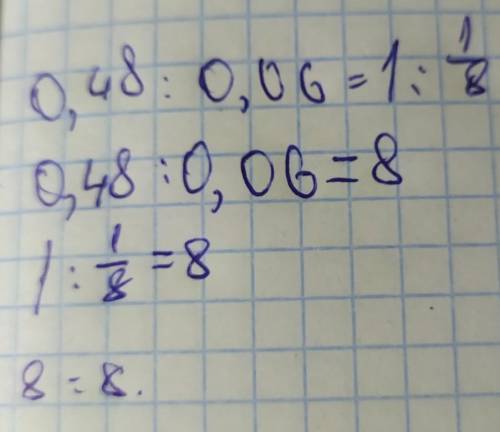 0,48 : 0,06 = 1 : 1/8
0,48 : 0,06 = 8
1 : 1/8 = 8
8 = 8.